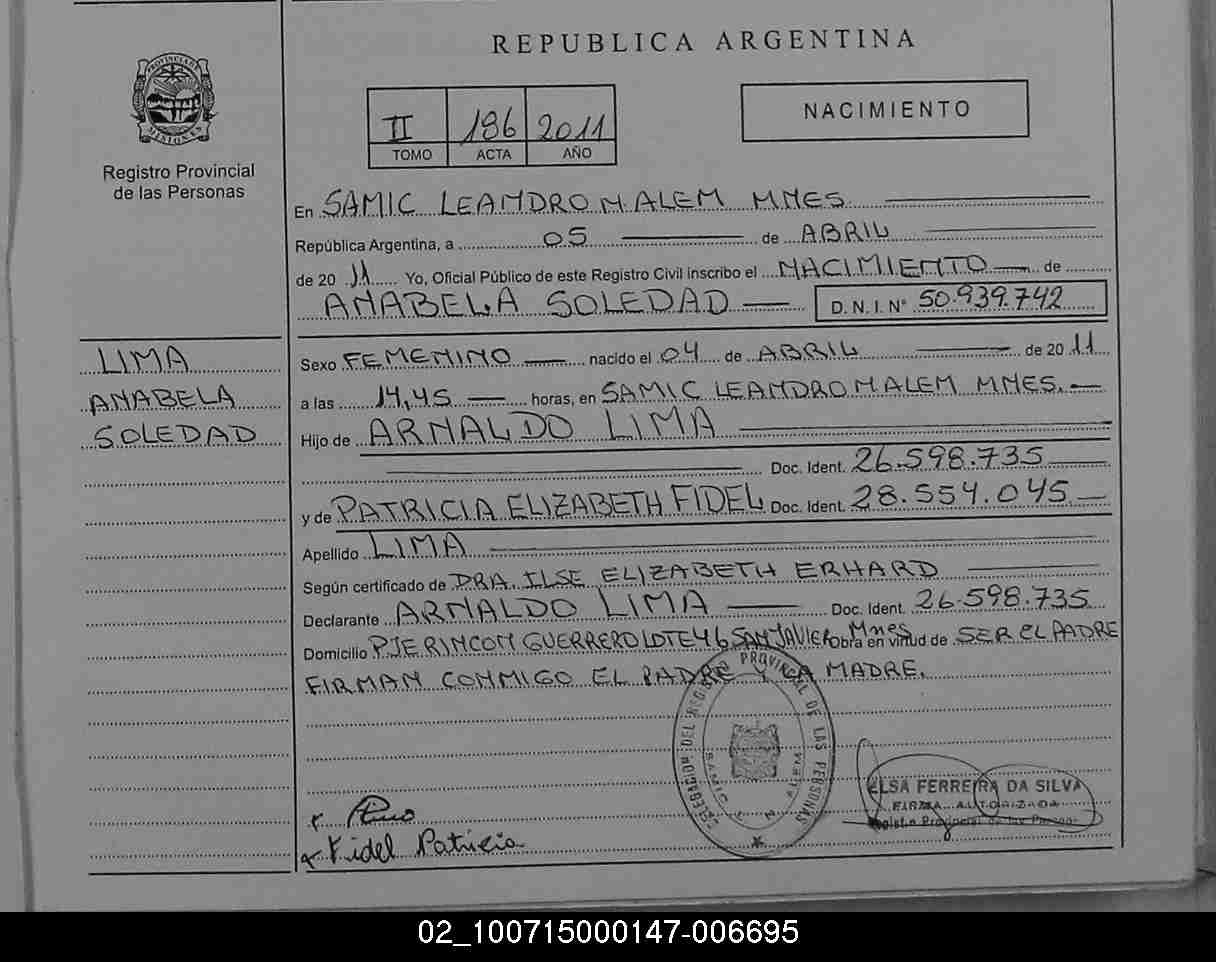 REPUBLICA ARGENTINA
PROVINCIA DE MISIONES
Registro Provincial
de las Personas
II 186 2011
TOMO ACTA AÑO
NACIMIENTO
En SAMIC LEANDRO N. ALEM MNES
República Argentina, a 05 de ABRIL
de 20 11 Yo, Oficial Público de este Registro Civil inscribo el NACIMIENTO de
ANABELA SOLEDAD D. N. I. Nº 50.939.742
LIMA
ANABELA
SOLEDAD
Sexo FEMENINO nacido el 04 de ABRIL de 20 11
a las 14,45 horas, en SAMIC LEANDRO N ALEM MNES.
Hijo de ARNALDO LIMA
Doc. Ident. 26.598.735
y de PATRICIA ELIZABETH FIDEL Doc. Ident. 28.554.045
Apellido LIMA
Según certificado de DRA. ILSE ELIZABETH ERHARD
Declarante ARNALDO LIMA Doc. Ident. 26.598.735
Domicilio PJE RINCON GUERRERO LOTE 46 SAN JAVIER Mnes Obra en virtud de SER EL PADRE
FIRMAN CONMIGO EL PADRE Y LA MADRE.
DELEGACION DEL REGISTRO PROVINCIAL DE LAS PERSONAS
SAMIC
ELSA FERREIRA DA SILVA
FIRMA AUTORIZADA
Registro Provincial de las Personas
x Fidel Patricia
02_100715000147-006695